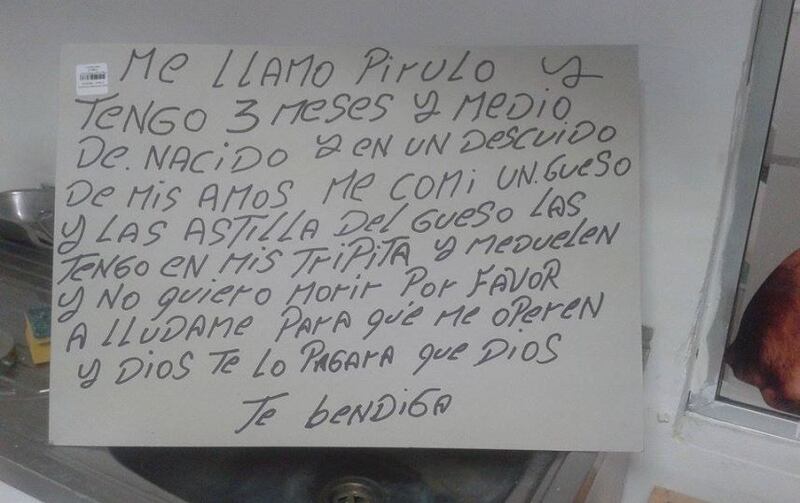 Me LLAMO PirULO Y
TENGO 3 MESES Y MEDIO
DE. NACIDO Y EN UN DESCUIDO
DE MIS AMOS Me COMI UN. GUESO
Y LAS ASTILLA DEL GUESO LAS
TENGO EN MIS TriPITA Y MEDUELEN
Y NO QUIERO MOrIr POr FAVOR
A LLUDAME PARA QUE Me OPEREN
Y DIOS Te LO PAGARA QUE DIOS
Te beNDIGA